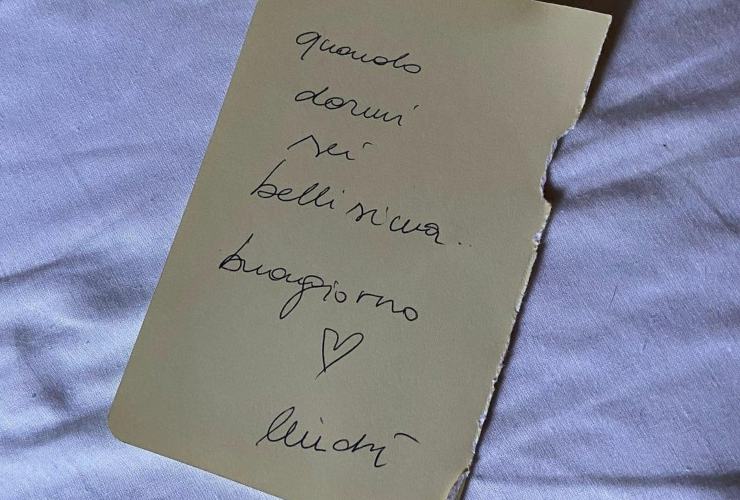 quando
dormi
sei
bellisima..
buongiorno
♡